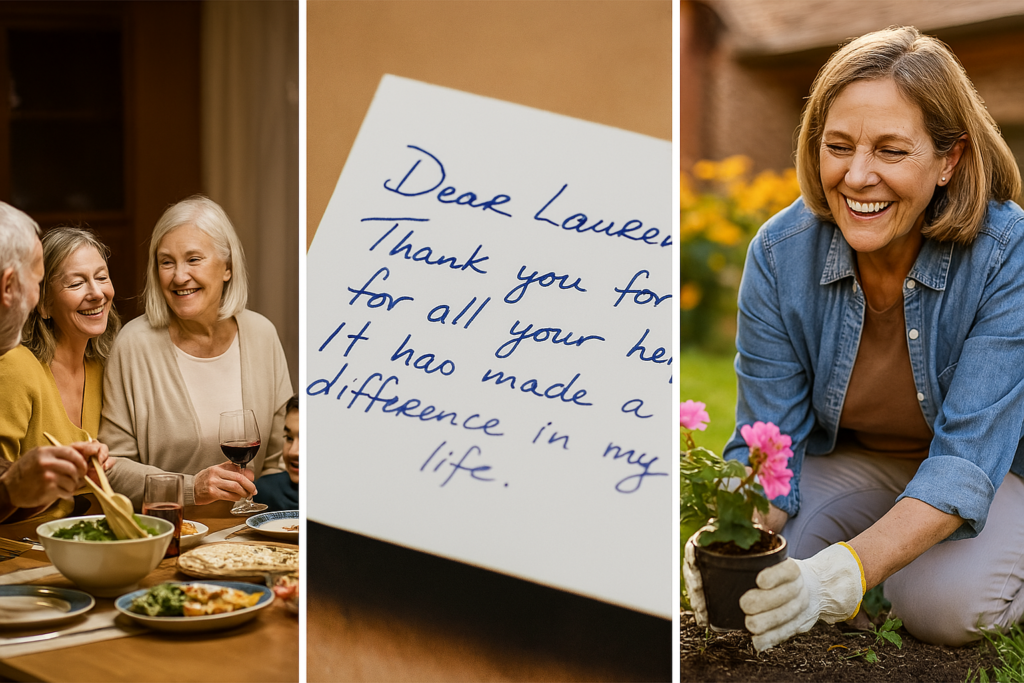 Dear Lauren
Thank you for
for all your he
It has made a
difference in my
life.